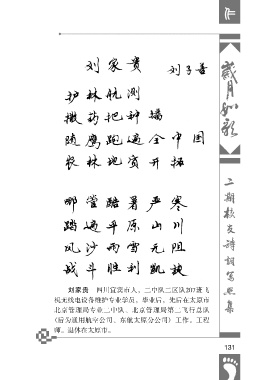 作
岁月如歌
二期校友诗词写照集
刘家贵 刘子善
护林航测
撒药把种播
随鹰跑遍全中国
农林地质开拓
哪管酷暑严寒
踏遍平原山川
风沙雨雪无阻
战斗胜利凯旋
刘家贵 四川宜宾市人，二中队二区队207班飞
机无线电设备维护专业学员。毕业后，先后在太原市
北京管理局专业二中队、北京管理局第二飞行总队
（后为通用航空公司、东航太原分公司）工作。工程
师。退休在太原市。
131